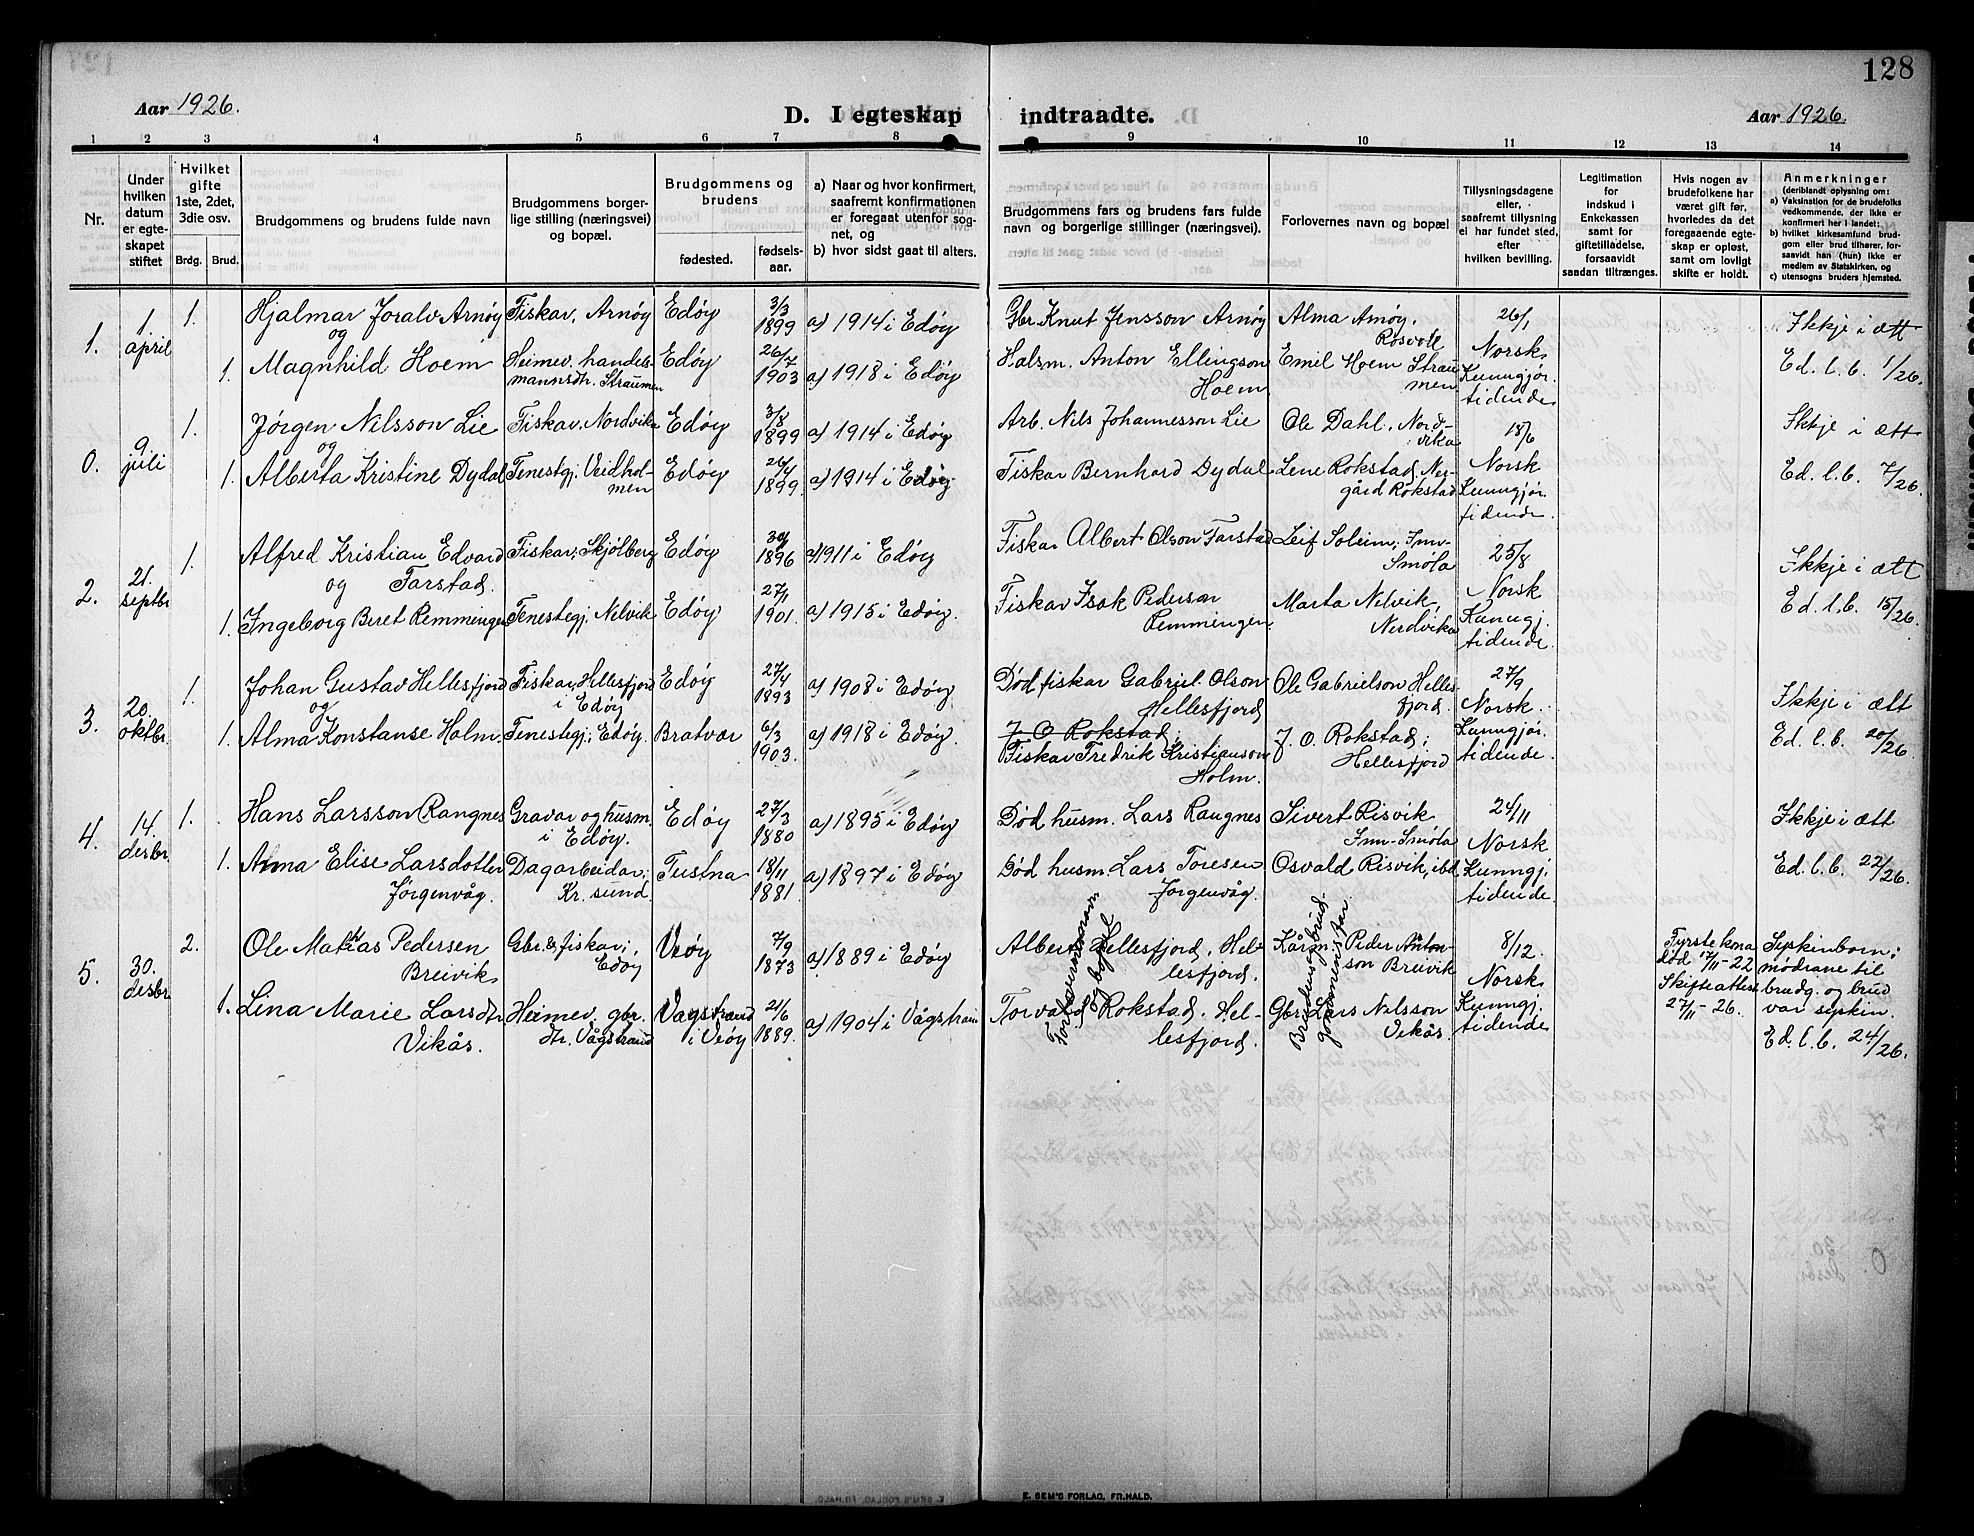 128
Aar 1926.
D. I egteskap indtraadte.
Aar 1926.
1 2 3 4 5 6 7 8 9 10 11 12 13 14
Nr.
Under hvilken datum er egteskapet stiftet
Hvilket gifte 1ste, 2det, 3die osv.
Brdg. Brud.
Brudgommens og brudens fulde navn
Brudgommens borgerlige stilling (næringsvei) og bopæl.
Brudgommens og brudens
fødested.
fødselsaar.
a) Naar og hvor konfirmert, saafremt konfirmationen er foregaat utenfor sognet, og
b) hvor sidst gaat til alters.
Brudgommens fars og brudens fars fulde navn og borgerlige stillinger (næringsvei).
Forlovernes navn og bopæl
Tillysningsdagene eller, saafremt tillysning ei har fundet sted, efter hvilken bevilling.
Legitimation for indskud i Enkekassen samt for giftetilladelse, forsaavidt saadan tiltrænges.
Hvis nogen av brudefolkene har været gift før, hvorledes da det foregaaende egteskap er opløst, samt om lovligt skifte er holdt.
Anmerkninger
(deriblandt oplysning om:
a) Vaksination for de brudefolks vedkommende, der ikke er konfirmert her i landet;
b) hvilket kirkesamfund brudgom eller brud tilhører, forsaavidt han (hun) ikke er medlem av Statskirken, og
c) utensogns bruders hjemsted.
1. 1. april 1. Hjalmar Joralv Arnøy og Fiskar, Arnøy Edøy 3/3 1899 a) 1914 i Edøy Gbr. Knut Jensson Arnøy Alma Arnøy, Rosvoll 26/1 Norsk Kunngjør. tidende Ikkje i ætt
1. Magnhild Hoem Heimev. handelsmannsdtr. Straumen Edøy 26/7 1903 a) 1918 i Edøy Halsm. Anton Ellingson Hoem Emil Hoem Straumen Ed. l. b. 1/26.
0. 9 juli 1. Jørgen Nilsson Lie og Fiskar, Nordvika Edøy 3/8 1899 a) 1914 i Edøy Arb. Nils Johannesson Lie Ole Dahl, Nordvika 18/6 Norsk Kunngjør. tidende. Ikkje i ætt
1. Alberta Kristine Dydal Tenestgj. Veidholmen Edøy 26/4 1899 a) 1914 i Edøy Fiskar Bernhard Dydal Lene Rokstad, Nergård Rokstad Ed. l. b. 7/26.
2. 21. septbr 1. Alfred Kristian Edvard Tarstad. og Fiskar; Skjølberg Edøy 1896 a) 1911 i Edøy Fiskar Albert Olson Tarstad Leif Soleim; Inn-Smøla 25/8 Norsk Kunngj. tidende. Ikkje i ætt
1. Ingeborg Beret Remmingen Tenestegj; Nelvik Edøy 27/1 1901. a) 1915 i Edøy. Fiskar Isak Pederson Remmingen. Marta Nelvik, Nordvika Ed. l. b. 15/26.
3. 20. oktbr. 1. Johan Gustav Hellesfjord og Fiskar, Hellesfjord i Edøy Edøy 27/4 1893 a) 1908 i Edøy Død fiskar Gabriel Olson Hellesfjord Ole Gabrielson Hellesfjord 27/9 Norsk. Kunngjør. tidende. Ikkje i ætt
1. Alma Konstanse Holm. Tenestegj; Edøy. Bratvær 6/3 1903. a) 1918 i Edøy. J. O. Rokstad, Fiskar Fredrik Kristianson Holm. J. O. Rokstad; Hellesfjord Ed. l. b. 20/26.
4. 14. desbr. 1. Hans Larsson Rangnes Gravar og husm. i Edøy. Edøy 27/3 1880 a) 1895 i Edøy Død husm. Lars Rangnes Sivert Risvik Inn-Smøla 24/11 Norsk Kunngj; tidende. Ikkje i ætt
1. Anna Elise Larsdotter Jørgenvåg. Dagarbeidar; Kr. sund. Tustna 18/11 1881. a) 1897 i Edøy Død husm. Lars Toresen Jørgenvåg. Osvald Risvik, ibd Ed. l. b. 22/26.
5. 30. desbr 2. Ole Mathias Pedersen Breivik Gbr. & fiskar; Edøy Veøy 7/9 1873 a) 1889 i Edøy Albert Hellesfjord. Hellesfjord. Kårm. Peder Antonson Breivik 8/12. Norsk Kunngj. tidende Fyrste kona død 17/11-22 Skifteattest 27/11-26. Syskinborn; mødrane til brudg. og brud var syskin.
1. Lina Marie Larsdtr Vikås. Heimev. gbr. dtr. Vågstrand Vågstrand i Veøy 21/6 1889. a) 1904 i Vågstrand Torvald Rokstad. Hellesfjord. Gbr. Lars Nilsson Vikås. Ed. l. b. 24/26.
Forloverens navn og bopæl
Brudens og brudgomens far.
E. SEM'S FORLAG, FR.HALD.